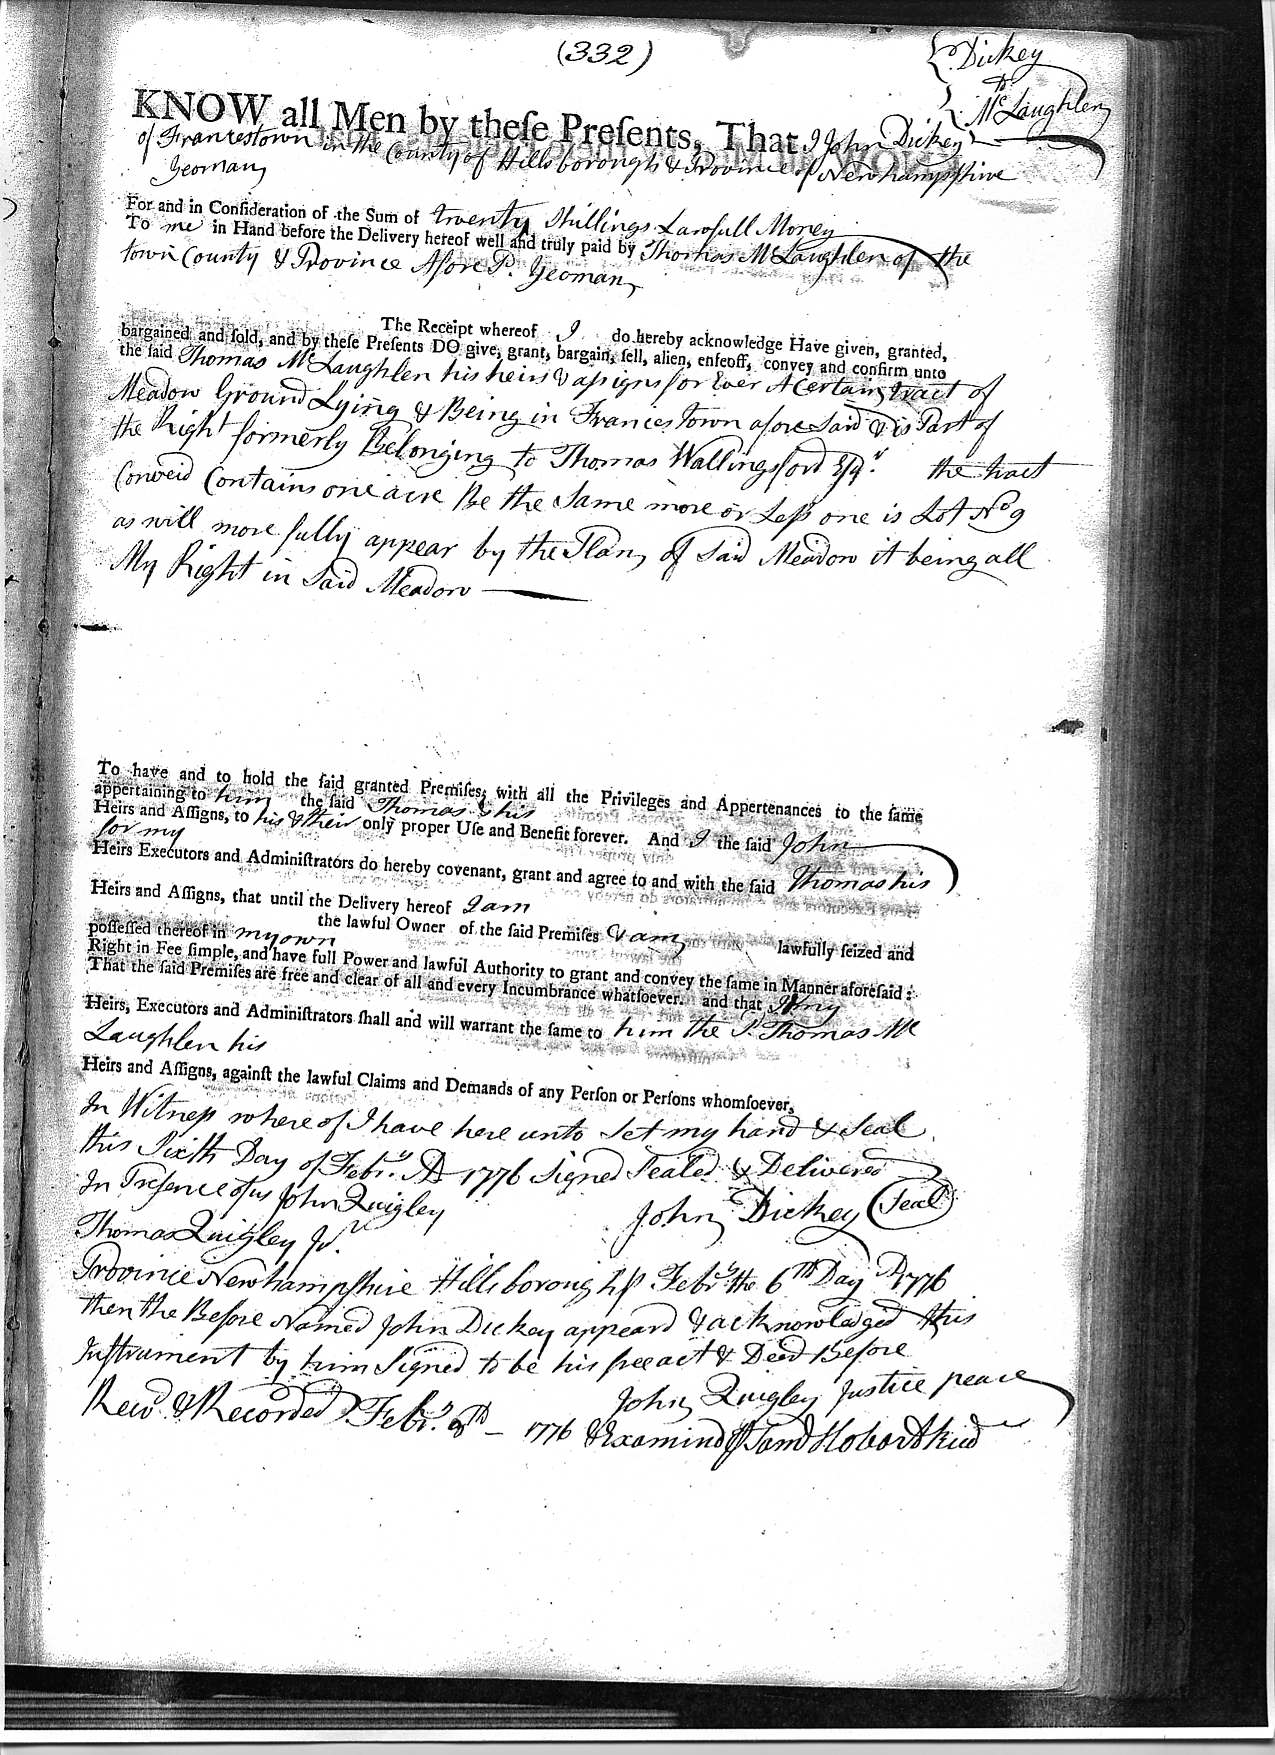 (332)
Dickey
to
McLaughlen
KNOW all Men by theſe Preſents, That I John Dickey
of Francestown in the County of Hillsborough & Province of Newhampshire
Yeoman
For and in Conſideration of the Sum of twenty Shillings Lawfull Money
To me in Hand before the Delivery hereof well and truly paid by Thomas McLaughlen of the
town County & Province Afore Sd. Yeoman
The Receipt whereof I do hereby acknowledge Have given, granted,
bargained and ſold, and by theſe Preſents DO give, grant, bargain, ſell, alien, enfeoff, convey and confirm unto
the ſaid Thomas McLaughlen his heirs & assigns for Ever A Certain tract of
Meadow Ground Lying & Being in Francestown afore Said & is Part of
the Right formerly Belonging to Thomas Wallingsford Esqr. the tract
Conveid Contains one acre Be the Same more or Less one is Lot No 9
as will more fully appear by the Plan of Said Meadow it being all
My Right in Said Meadow
To have and to hold the ſaid granted Premiſes, with all the Privileges and Appertenances to the ſame
appertaining to him the ſaid Thomas & his
Heirs and Aſſigns, to his & their only proper Uſe and Benefit forever. And I the ſaid John
for my
Heirs Executors and Adminiſtrators do hereby covenant, grant and agree to and with the ſaid Thomas his
Heirs and Aſſigns, that until the Delivery hereof I am
the lawful Owner of the ſaid Premiſes & am lawfully ſeized and
poſſeſſed thereof in my own
Right in Fee ſimple, and have full Power and lawful Authority to grant and convey the ſame in Manner aforeſaid:
That the ſaid Premiſes are free and clear of all and every Incumbrance whatſoever. and that I & my
Heirs, Executors and Adminiſtrators ſhall and will warrant the ſame to him the Sd. Thomas Mc
Laughlen his
Heirs and Aſſigns, againſt the lawful Claims and Demands of any Perſon or Perſons whomſoever,
In Witness where of I have here unto Set my hand & Seal
this Sixth Day of Febry. AD 1776 Signed Sealed & Delivered
In Presence of us John Quigley John Dickey (Seal)
Thomas Quigley Jr.
Province Newhampshire Hillsborough ss Febry the 6th Day AD 1776
then the Before Named John Dickey appeard & acknowledged this
Instrument by him Signed to be his free act & Deed Before
John Quigley Justice peace
Recd. & Recorded Febry. 8th - 1776 & Examind Saml Hobart